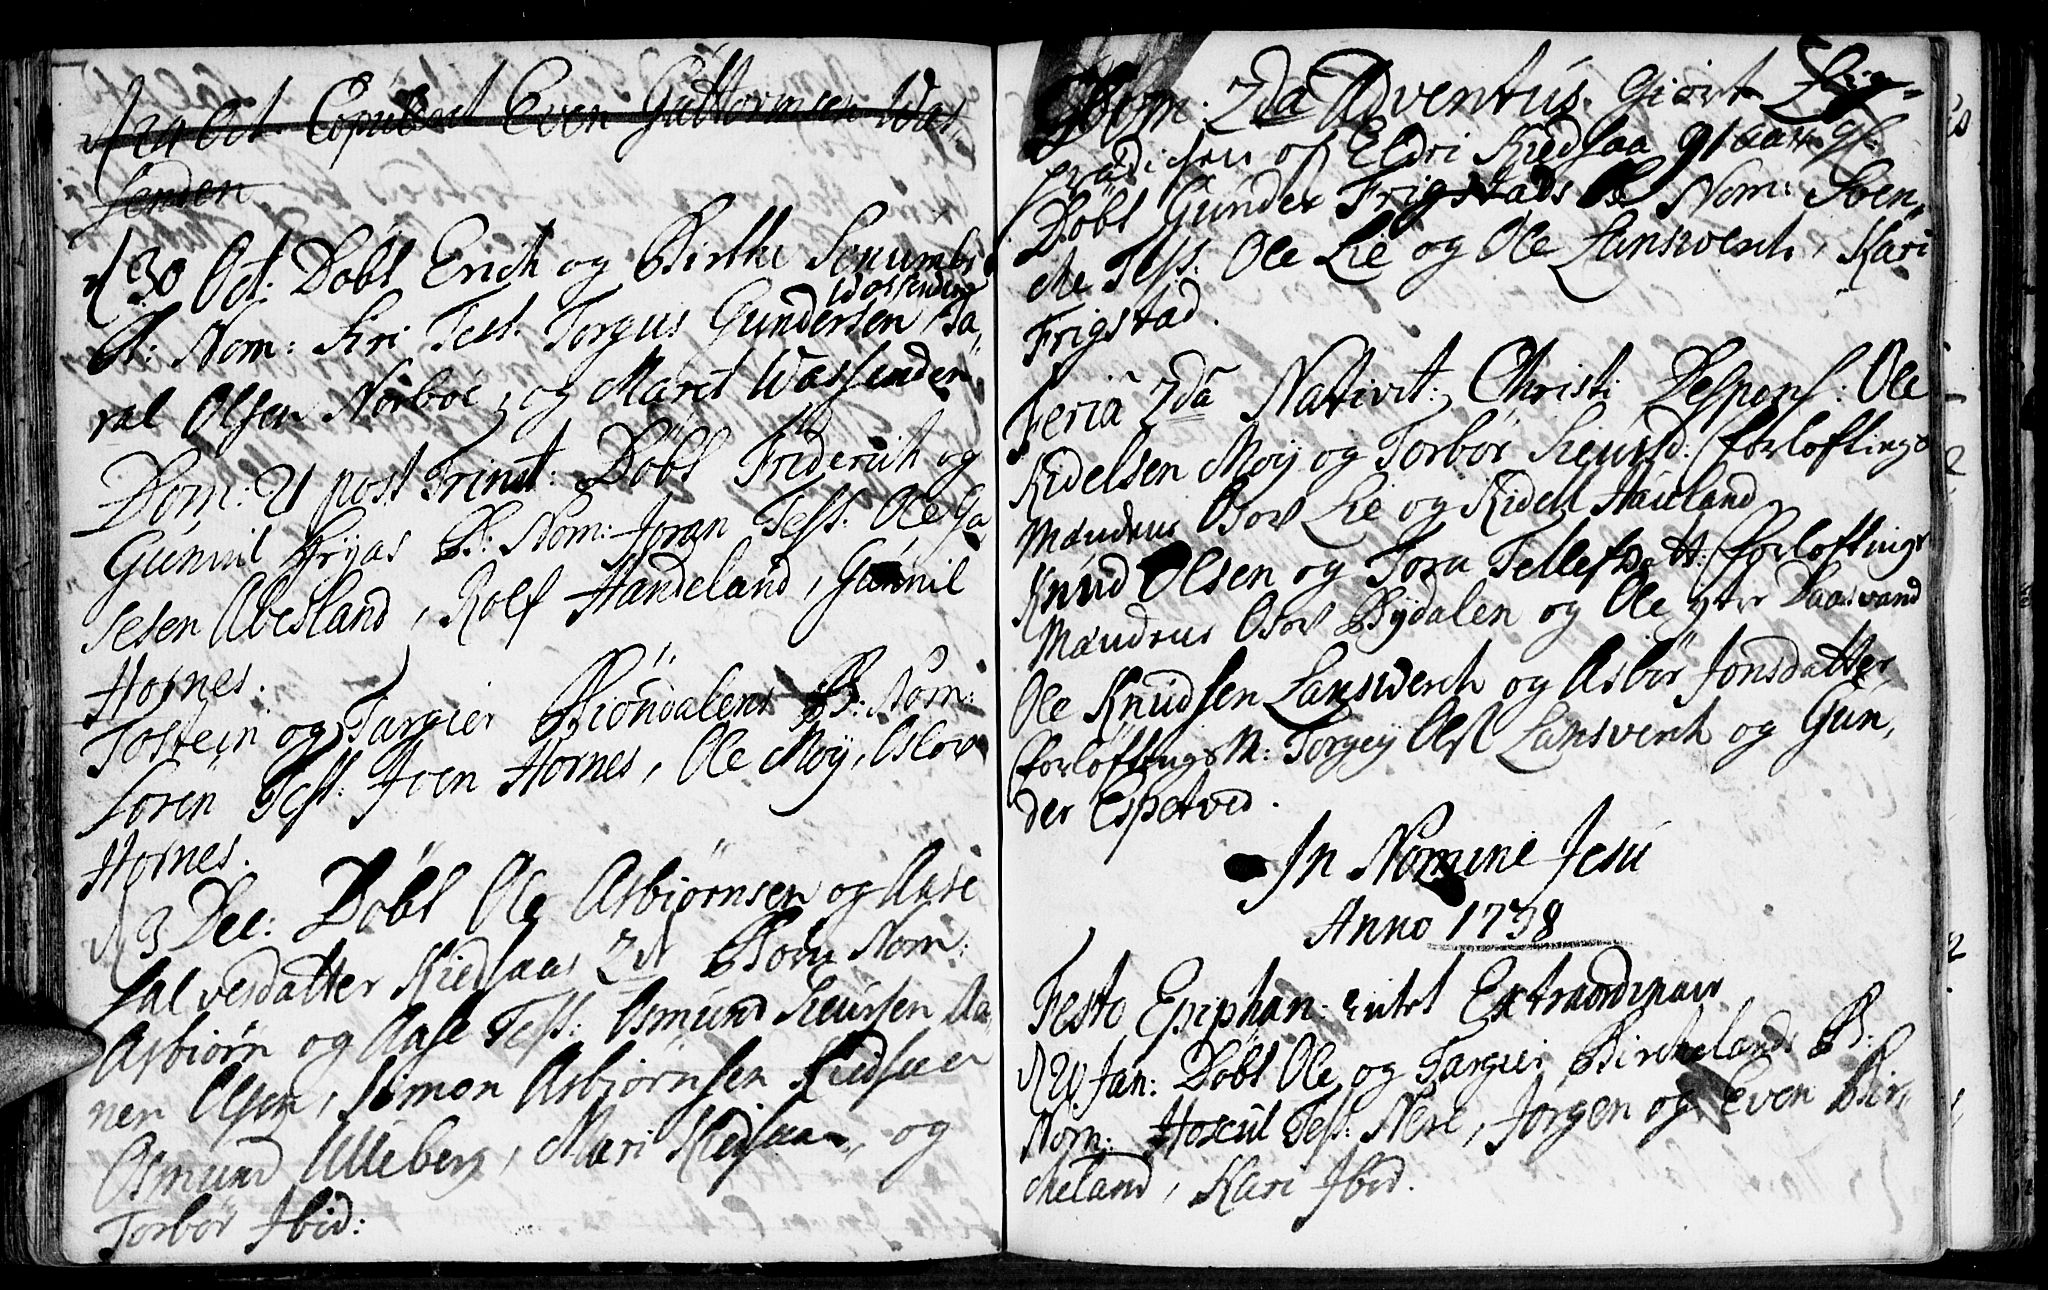 d 24 Oct. Copulert Even Guttormsen Was-
senden
d 30 Oct: Döbt Erich og Birthe Senumbr
B: Nom: Siri Test. Torgus Gundersen Wassenden, Ta-
ral Olsen Nörböe, og Marit Wassenden,
Dom: 21 post Trinit: Döbt Friderich og
Gunnil Fryas B: Nom: Joran Test. Ole Ga
sesen Abesland, Rolf Handeland, Gunnil
Hornes.
Tostein og Targier Biöndalens B: Nom:
Sören Test. Joen Hornes, Ole Moÿ, Aslov
Hornes.
d 3 Dec: Döbt Ole Asbiörnsen og Aase
Salvesdatter Kiedsaas 2 Börn Nom:
Asbiörn og Aase Test: Asmund Siursen Aa,
nen Olsen, Simon Asbiörnsen Kiedsaaen
Osmund Ulleberg, Mari Kiedsaaen, og
Torbör Ibid:
Dom: 2da Adventus. Giort Lig-
prædichen of Eldri Kiedsaa 91 aar gl.
Döbt Gunder Frigstads B Nom: Sven,
che Test. Ole Lie og Ole Lansverch, Kari
Frigstad.
Feria 2da Nativit: Christi Despons: Ole
Kidelsen Moÿ og Torbör Siursd: Forloftings
Mændene Osov Lie og Kidell Haueland
Knud Olsen og Tora Tellefsdatt: Forloftings
Mændene Osov Bÿdalen og Ole ytre Daasvand
Ole Knudsen Lansverch og Asbör Jonsdatter
Forloftings M: Torgey Ols Lansverch og Gun,
der Espetved.
In Nomine Jesu
Anno 1738
Festo Epiphan: intet Extraordinair
d 20 Jan: Döbt Ole og Targier Birchelands B:
Nom: Hoscul Test: Nere, Jörgen og Even Bir,
cheland, Kari Ibid.